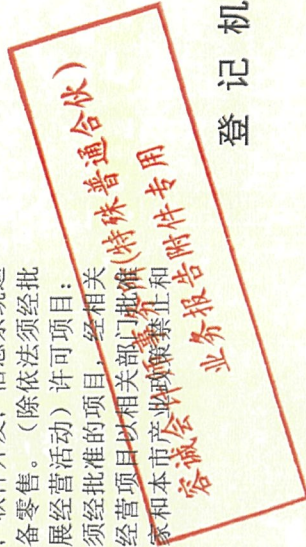 、软件开发;信息系统运
备零售。（除依法须经批
展经营活动）许可项目：
须经批准的项目，经相关
经营项目以相关部门批准
家和本市产业政策禁止和
容诚会计师事务所(特殊普通合伙)
业务报告附件专用
登记机